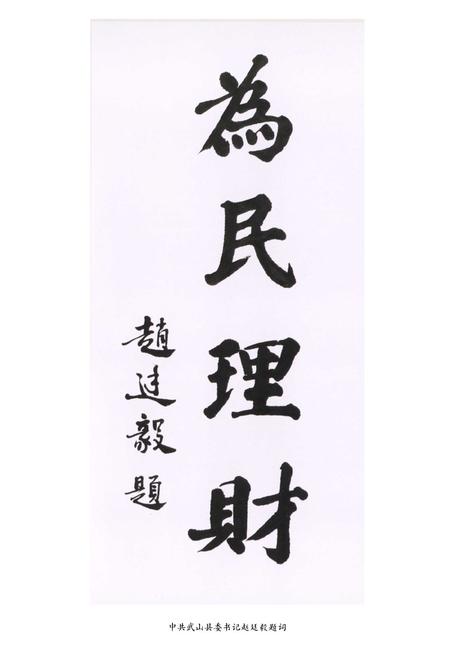 為民理財
趙廷毅題
中共武山县委书记赵廷毅题词